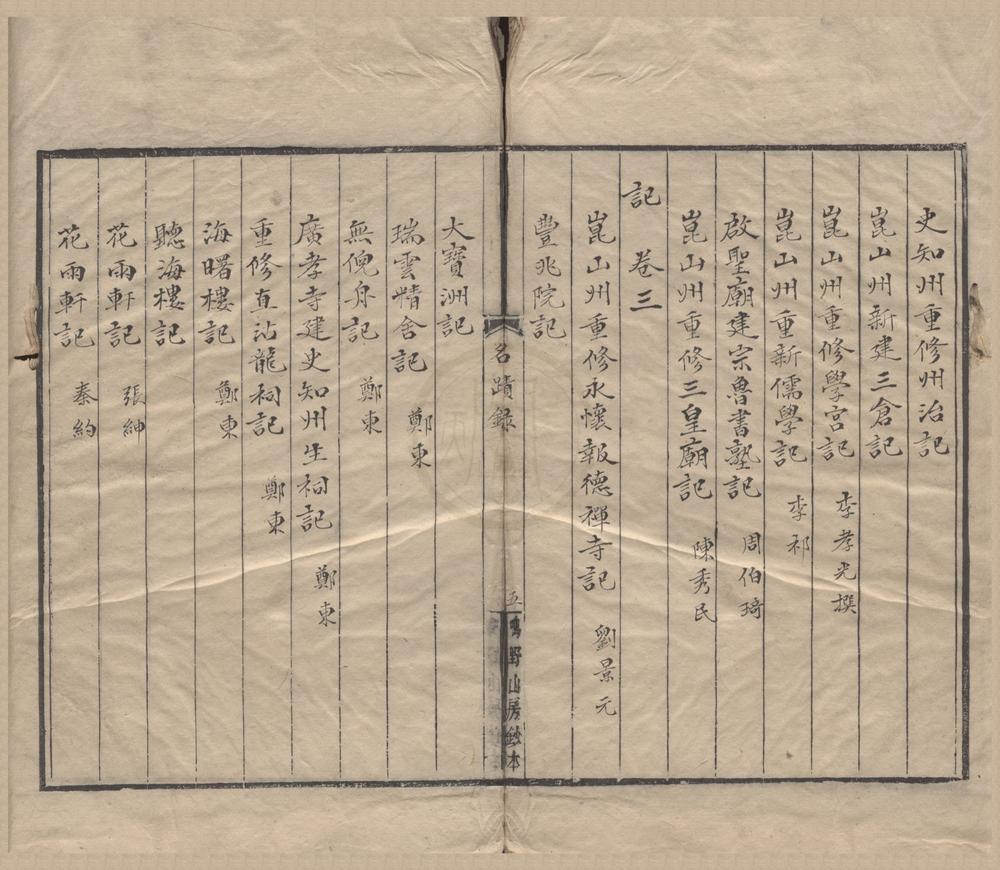 史知州重修州治記
崑山州新建三倉記
崑山州重修學宮記 李孝光撰
崑山州重新儒學記 李祁
啟聖廟建宗魯書塾記 周伯琦
崑山州重修三皇廟記 陳秀民
記 卷三
崑山州重修永懷報德禪寺記 劉景元
豐兆院記
名蹟錄
五
野山房鈔本
大寶洲記
瑞雲精舍記 鄭東
無倪舟記 鄭東
廣孝寺建史知州生祠記 鄭東
重修直沽龍祠記 鄭東
海曙樓記 鄭東
聽海樓記
花雨軒記 張紳
花雨軒記 秦約